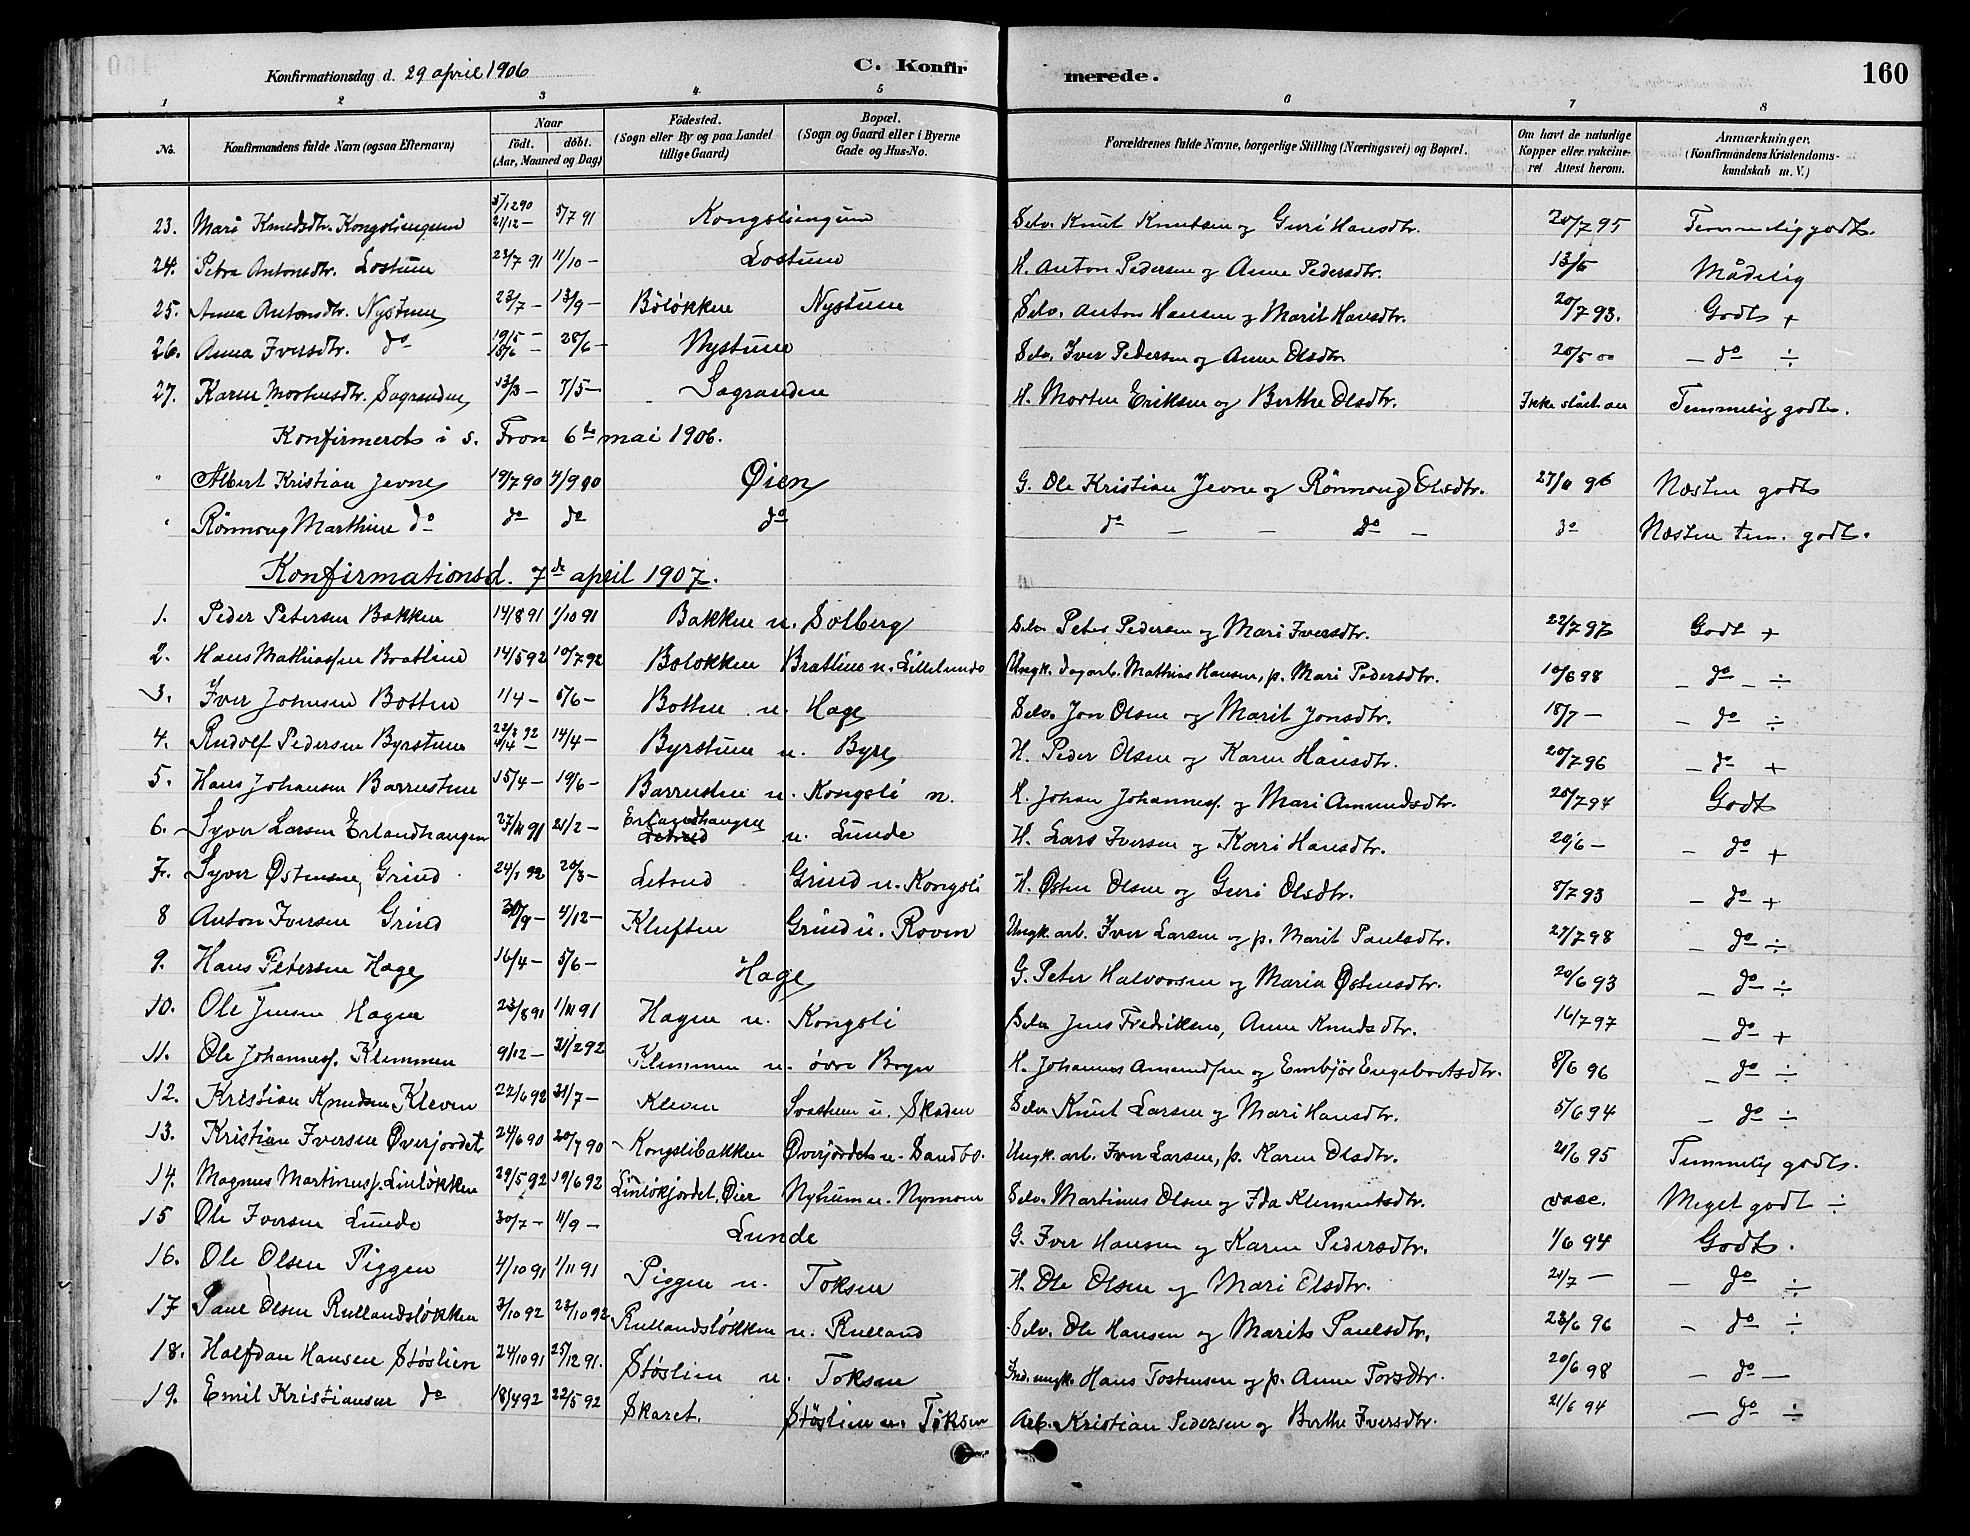 Konfirmationsdag d. 29 april 1906 C. Konfirmerede. 160
1 2 3 4 5 6 7 8
No. Konfirmandens fulde Navn (ogsaa Efternavn) Naar födt. döbt. (Aar, Maaned og Dag) Födested. (Sogn eller By og paa Landet tillige Gaard) Bopæl. (Sogn og Gaard eller i Byerne Gade og Hus-No. Forældrenes fulde Navne, borgerlige Stilling (Næringsvei) og Bopæl. Om havt de naturlige Kopper eller vakcineret Attest herom. Anmærkninger. (Konfirmandens Kristendomskundskab m. V.)
23. Mari Knudsdtr. Kongsliengum 5/12 90 21/12 — 5/7 91 Kongsliengum Selv. Knut Knutsen og Guri Hansdtr. 20/7 95 Temmelig godt.
24. Petra Antonsdtr. Lostuen 23/7 91 11/10 — Lostuen H. Anton Pedersen og Anne Pedersdtr. 13/5 Mådelig
25. Anna Antonsdtr. Nystuen 23/7 — 13/9 — Böløkken Nystuen Selv. Anton Hansen og Marit Hansdtr. 20/7 93. Godt +
26. Anna Iversdtr. do 28/6 — Nystuen Selv. Iver Pedersen og Anne Olsdtr. 20/5 00 — do ÷
27. Karen Mortensdtr. Sagranden 13/3 — 7/5 — Sagranden H. Morten Eriksen og Berthe Olsdtr. Ikke slået an Temmelig godt.
Konfirmerets i s. Fron 6te mai 1906.
" Albert Kristian Jevne 19/7 90 4/9 90 Øien G. Ole Kristian Jevne og Rönnoug Olsdtr. 27/11 96 Næsten godt
" Rønnoug Marthine do do do do do — — do — do Næsten tem. godt.
Konfirmationsd. 7de april 1907.
1. Peder Petersen Bakken 14/8 91 1/10 91 Bakken u. Solberg Selv. Peter Pedersen og Mari Iversdtr. 22/7 97 Godt +
2. Hans Mathiassen Bratlien 14/5 92 10/7 92 Bolokken Bratlien u. Lillelunde Ungk. dagarb. Mathias Hansen, p. Mari Pedersdtr. 10/6 98 — do — ÷
3. Iver Johnsen Botten 1/4 — 5/6 — Botten u. Hage Selv. Jon Olsen og Marit Jonsdtr. 18/7 — — do ÷
4. Rudolf Pedersen Byrstuen 22/3 92 14/4 — Byrstuen u. Byre H. Peder Olsen og Karen Hansdtr. 20/7 96 — do +
5. Hans Johansen Barrustuen 15/4 — 19/6 — Barrustuen u. Kongsli n. H. Johan Johanness. og Mari Amundsdtr. 20/7 94 Godt
6. Syver Larsen Erlandhaugen 27/11 91 21/2 — Erlandhaugen u. Lunde H. Lars Iversen og Kari Hansdtr. 20/6 — — do +
7. Syver Østensen Grind 24/1 92 20/3 — Letrud Grind u. Kongsli H. Østen Olsen og Guri Olsdtr. 8/7 93 — do +
8 Anton Iversen Grind 30/9 — 4/12 — Kluften Grind u. Roven Ungk. arb. Iver Larsen og p. Marit Paulsdtr. 27/7 98 — do ÷
9. Hans Petersen Hage 16/4 — 5/6 — Hage G. Peter Halvorsen og Maria Østensdtr. 20/6 93 — do ÷
10. Ole Jensen Hagen 23/8 91 1/11 91 Hagen u. Kongsli Selv. Jens Fredriksen, Anne Knudsdtr. 16/7 97 — do +
11. Ole Johanness. Klemmen 9/12 — 21/2 92 Klemmen u. övre Bryn H. Johannes Amundsen og Embjör Engebretsdtr. 8/6 96 — do ÷
12. Kristian Knudsen Kleven 22/6 92 31/7 — Kleven u. Skaden Selv. Knut Larsen og Mari Hansdtr. 5/6 94 — do ÷
13. Kristian Iversen Øverjordet 24/6 90 20/7 90 Kongslibakken Øverjordet u. Sandbo. Ungk. arb. Iver Larsen, p. Karen Olsdtr. 21/6 95 Temmelig godt.
14. Magnus Martinuss. Linløkken 29/5 92 19/6 92 Linløkjordet, Øier Nyhum u. Nymoen Selv. Martinus Olsen og Ida Klemmetsdtr. vacc. Meget godt ÷
15 Ole Iversen Lunde 30/7 — 11/9 — Lunde G. Iver Hansen og Karen Pedersdtr. 1/6 94 Godt.
16. Ole Olsen Piggen 4/10 91 1/11 91 Piggen u. Toksen H. Ole Olsen og Mari Olsdtr. 21/7 — — do ÷
17 Paul Olsen Rullandsløkken 3/10 92 23/10 92 Rullandsløkken u. Rulland Selv. Ole Hansen og Marit Paulsdtr. 23/6 96 — do ÷
18. Halfdan Hansen Støslien 24/10 91 25/12 91. Støslien u. Toksen Ind. ungk. Hans Tostensen og p. Anne Torsdtr. 20/6 98 — do —
19. Emil Kristiansen do 18/4 92 22/5 92 Skaret. Støslien u. Toksen Arb. Kristian Pedersen og Berthe Iversdtr. 21/6 94 — do ÷